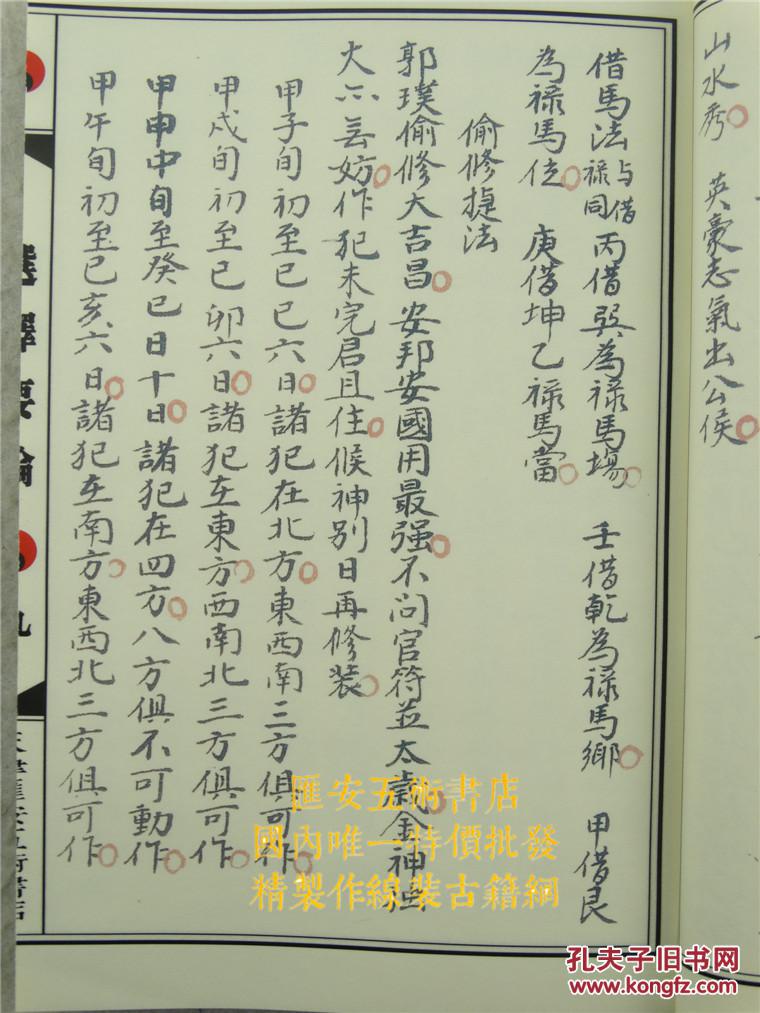 山水秀　英豪志氣出公侯
借馬法與借祿同　丙借巽為祿馬場　壬借乾為祿馬鄉　甲借艮
為祿馬位　庚借坤乙祿馬當
偷修捷法
郭璞偷修大吉昌　安邦安國用最强　不问官符並太歲　金神
火亦無妨　作犯未完君且住　候神别日再修装
甲子旬初至己巳六日　諸犯在北方　東西南三方俱可作
甲戌旬初至己卯六日　諸犯在東方　西南北三方俱可作
甲申中旬至癸巳日十日　諸犯在四方　八方俱不可動作
甲午旬初至己亥六日　諸犯在南方　東西北三方俱可作
選擇要論
九
匯安五術書店
國內唯一特價批發
精製作線裝古籍網
孔夫子旧书网
www.kongfz.com